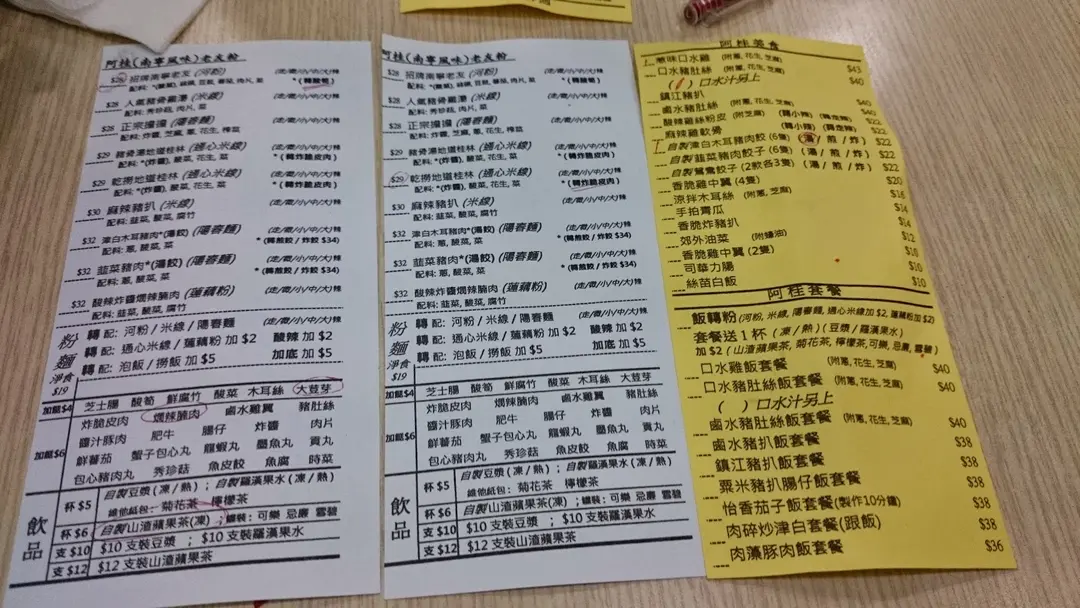 阿桂(南寧風味)老友粉
$28 招牌南寧老友 (河粉) (走/微/小/中/大)辣
配料: *(酸筍), 豬頸, 豆豉, 番茄, 肉片, 菜 * (轉酸筍)
$28 人氣豬骨雞湯 (米線) (走/微/小/中/大)辣
配料: 秀珍菇, 肉片, 菜
$28 正宗擔擔 (陽春麵) (走/微/小/中/大)辣
配料: 炸醬, 芝麻, 蔥, 花生, 榨菜
$29 豬骨湯地道桂林 (通心米線) (走/微/小/中/大)辣
配料: *(炸醬), 酸菜, 花生, 菜 * (轉炸脆皮肉)
$29 乾撈地道桂林 (通心米線) (走/微/小/中/大)辣
配料: *(炸醬), 酸菜, 花生, 菜 * (轉炸脆皮肉)
$30 麻辣豬扒 (米線) (走/微/小/中/大)辣
配料: 韮菜, 酸菜, 腐竹
$32 津白木耳豬肉*(湯餃) (陽春麵) (走/微/小/中/大)辣
配料: 蔥, 酸菜, 菜 * (轉煎餃 / 炸餃 $34)
$32 韮菜豬肉*(湯餃) (陽春麵) (走/微/小/中/大)辣
配料: 蔥, 酸菜, 菜 * (轉煎餃 / 炸餃 $34)
$32 酸辣炸醬燜辣腩肉 (蓮藕粉) (走/微/小/中/大)辣
配料: 韮菜, 酸菜, 腐竹
粉麵 淨食 $19
轉 配: 河粉 / 米線 / 陽春麵 (走/微/小/中/大)辣
轉 配: 通心米線 / 蓮藕粉 加 $2 酸辣 加 $2
轉 配: 泡飯 / 撈飯 加 $5 加底 加 $5
加餸$4 芝士腸 酸筍 鮮腐竹 酸菜 木耳絲 大荳芽
加餸$6 炸脆皮肉 燜辣腩肉 鹵水雞翼 豬肚絲
醬汁豚肉 肥牛 腸仔 炸醬 肉片
鮮蕃茄 蟹子包心丸 龍蝦丸 墨魚丸 貢丸
包心豬肉丸 秀珍菇 魚皮餃 魚腐 時菜
飲品
杯 $5 自製豆漿 (凍 / 熱) ; 自製羅漢果水 (凍 / 熱)
維他紙包: 菊花茶 檸檬茶
杯 $6 自製山渣蘋果茶(凍) ; 罐裝: 可樂 忌廉 雪碧
支 $10 $10 支裝豆漿 ; $10 支裝羅漢果水
支 $12 $12 支裝山渣蘋果茶
阿桂(南寧風味)老友粉
$28 招牌南寧老友 (河粉) (走/微/小/中/大)辣
配料: *(酸筍), 豬頸, 豆豉, 番茄, 肉片, 菜 * (轉酸筍)
$28 人氣豬骨雞湯 (米線) (走/微/小/中/大)辣
配料: 秀珍菇, 肉片, 菜
$28 正宗擔擔 (陽春麵) (走/微/小/中/大)辣
配料: 炸醬, 芝麻, 蔥, 花生, 榨菜
$29 豬骨湯地道桂林 (通心米線) (走/微/小/中/大)辣
配料: *(炸醬), 酸菜, 花生, 菜 * (轉炸脆皮肉)
$29 乾撈地道桂林 (通心米線) (走/微/小/中/大)辣
配料: *(炸醬), 酸菜, 花生, 菜 * (轉炸脆皮肉)
$30 麻辣豬扒 (米線) (走/微/小/中/大)辣
配料: 韮菜, 酸菜, 腐竹
$32 津白木耳豬肉*(湯餃) (陽春麵) (走/微/小/中/大)辣
配料: 蔥, 酸菜, 菜 * (轉煎餃 / 炸餃 $34)
$32 韮菜豬肉*(湯餃) (陽春麵) (走/微/小/中/大)辣
配料: 蔥, 酸菜, 菜 * (轉煎餃 / 炸餃 $34)
$32 酸辣炸醬燜辣腩肉 (蓮藕粉) (走/微/小/中/大)辣
配料: 韮菜, 酸菜, 腐竹
粉麵 淨食 $19
轉 配: 河粉 / 米線 / 陽春麵 (走/微/小/中/大)辣
轉 配: 通心米線 / 蓮藕粉 加 $2 酸辣 加 $2
轉 配: 泡飯 / 撈飯 加 $5 加底 加 $5
加餸$4 芝士腸 酸筍 鮮腐竹 酸菜 木耳絲 大荳芽
加餸$6 炸脆皮肉 燜辣腩肉 鹵水雞翼 豬肚絲
醬汁豚肉 肥牛 腸仔 炸醬 肉片
鮮蕃茄 蟹子包心丸 龍蝦丸 墨魚丸 貢丸
包心豬肉丸 秀珍菇 魚皮餃 魚腐 時菜
飲品
杯 $5 自製豆漿 (凍 / 熱) ; 自製羅漢果水 (凍 / 熱)
維他紙包: 菊花茶 檸檬茶
杯 $6 自製山渣蘋果茶(凍) ; 罐裝: 可樂 忌廉 雪碧
支 $10 $10 支裝豆漿 ; $10 支裝羅漢果水
支 $12 $12 支裝山渣蘋果茶
阿桂美食
蔥味口水雞 (附蔥, 花生, 芝麻) $43
口水豬肚絲 (附蔥, 花生, 芝麻) $40
( ) 口水汁另上
鎮江豬扒 $40
鹵水豬肚絲 (附蔥, 花生, 芝麻) $40
酸辣雞絲粉皮 (附芝麻) (轉小辣) (轉走辣) $22
麻辣雞軟骨 (轉小辣) (轉走辣) $22
自製津白木耳豬肉餃 (6隻) (湯 / 煎 / 炸) $22
自製韮菜豬肉餃 (6隻) (湯 / 煎 / 炸) $22
自製鴛鴦餃子 (2款各3隻) (湯 / 煎 / 炸) $22
香脆雞中翼 (4隻) $20
涼拌木耳絲 (附蔥, 芝麻) $16
手拍青瓜 $14
香脆炸豬扒 $14
郊外油菜 (附蠔油) $12
香脆雞中翼 (2隻) $10
司華力腸 $10
絲苗白飯 $10
阿桂套餐
飯轉粉 (河粉, 米線, 陽春麵, 通心米線加 $2, 蓮藕粉加 $2)
套餐送 1 杯 (凍 / 熱) ( 豆漿 / 羅漢果水)
加 $2 ( 山渣蘋果茶, 菊花茶, 檸檬茶, 可樂, 忌廉, 雪碧)
口水雞飯套餐 (附蔥, 花生, 芝麻) $40
口水豬肚絲飯套餐 (附蔥, 花生, 芝麻) $40
( ) 口水汁另上
鹵水豬肚絲飯套餐 (附蔥, 花生, 芝麻) $40
鹵水豬扒飯套餐 $38
鎮江豬扒飯套餐 $38
粟米豬扒腸仔飯套餐 $38
怡香茄子飯套餐 (製作10分鐘) $38
肉碎炒津白套餐(跟飯) $38
肉藻豚肉飯套餐 $36